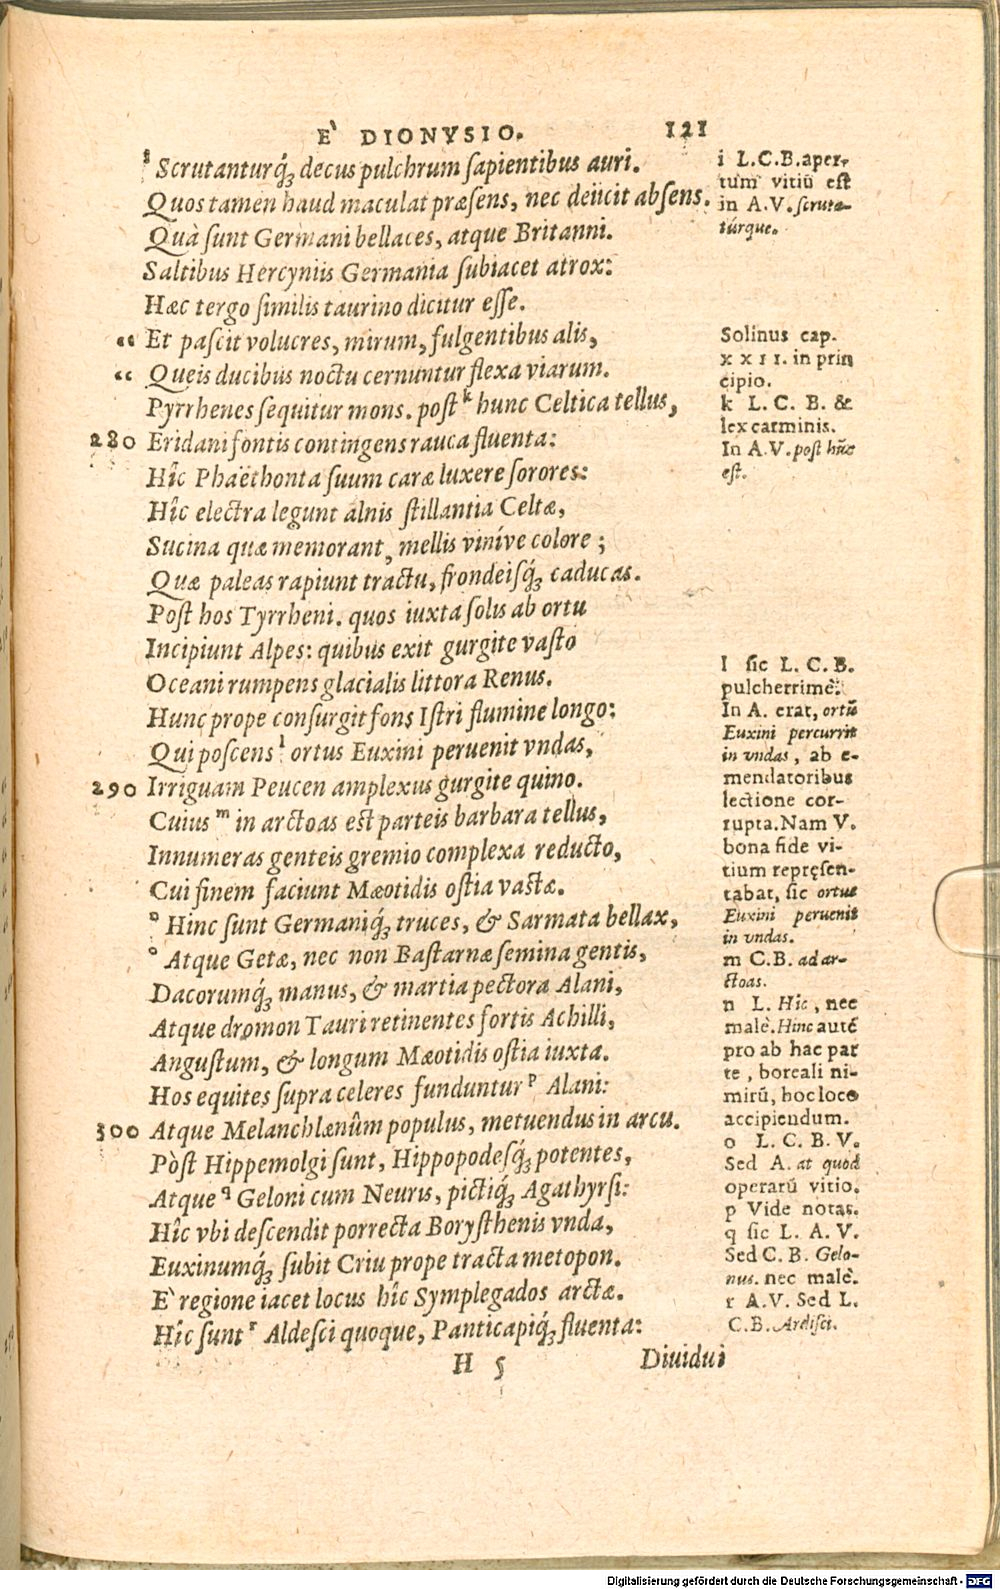 E` DIONYSIO. 121
i Scrutanturq́ꝫ decus pulchrum sapientibus auri.
Quos tamen haud maculat præsens, nec deiicit absens.
Quà sunt Germani bellaces, atque Britanni.
Saltibus Hercyniis Germania subiacet atrox:
Hæc tergo similis taurino dicitur esse.
“ Et pascit volucres, mirum, fulgentibus alis,
“ Queis ducibus noctu cernuntur flexa viarum.
Pyrrhenes sequitur mons. post k hunc Celtica tellus,
280 Eridani fontis contingens rauca fluenta:
Hîc Phaëthonta suum caræ luxere sorores:
Hîc electra legunt alnis stillantia Celtæ,
Sucina quæ memorant, mellis viníve colore;
Quæ paleas rapiunt tractu, frondeisq́ꝫ caducas.
Post hos Tyrrheni. quos iuxta solis ab ortu
Incipiunt Alpes: quibus exit gurgite vasto
Oceani rumpens glacialis littora Renus.
Hunc prope consurgit fons Istri flumine longo:
Qui poscens l ortus Euxini peruenit vndas,
290 Irriguam Peucen amplexus gurgite quino.
Cuius m in arctoas est parteis barbara tellus,
Innumeras genteis gremio complexa reducto,
Cui finem faciunt Mæotidis ostia vastæ.
n Hinc sunt Germaniq́ꝫ truces, & Sarmata bellax,
o Atque Getæ, nec non Bastarnæ semina gentis,
Dacorumq́ꝫ manus, & martia pectora Alani,
Atque dromon Tauri retinentes fortis Achilli,
Angustum, & longum Mæotidis ostia iuxta.
Hos equites supra celeres funduntur p Alani:
300 Atque Melanchlænûm populus, metuendus in arcu.
Pòst Hippemolgi sunt, Hippopodesq́ꝫ potentes,
Atque q Geloni cum Neuris, pictiq́ꝫ Agathyrsi:
Hîc vbi descendit porrecta Borysthenis vnda,
Euxinumq́ꝫ subit Criu prope tracta metopon.
E` regione iacet locus hîc Symplegados arctæ.
Hîc sunt r Aldesci quoque, Panticapiq́ꝫ fluenta:
H 5 Diuidui
i L.C.B. aper-
tum vitiū est
in A.V. scruta-
túrque.
Solinus cap.
XXII. in prin
cipio.
k L. C. B. &
lex carminis.
In A.V. post hūc
est.
l sic L. C. B.
pulcherrimè:
In A. erat, ortū
Euxini percurrit
in vndas, ab e-
mendatoribus
lectione cor-
rupta. Nam V.
bona fide vi-
tium repręsen-
tabat, sic ortus
Euxini peruenit
in vndas.
m C.B. ad ar-
ctoas.
n L. Hic, nec
malè. Hinc autē
pro ab hac par
te, boreali ni-
mirū, hoc loco
accipiendum.
o L. C. B. V.
Sed A. at quod
operarū vitio.
p Vide notas.
q sic L. A. V.
Sed C. B. Gelo-
nus. nec malè.
r A.V. Sed L.
C.B. Ardisci.
Digitalisierung gefördert durch die Deutsche Forschungsgemeinschaft - DFG